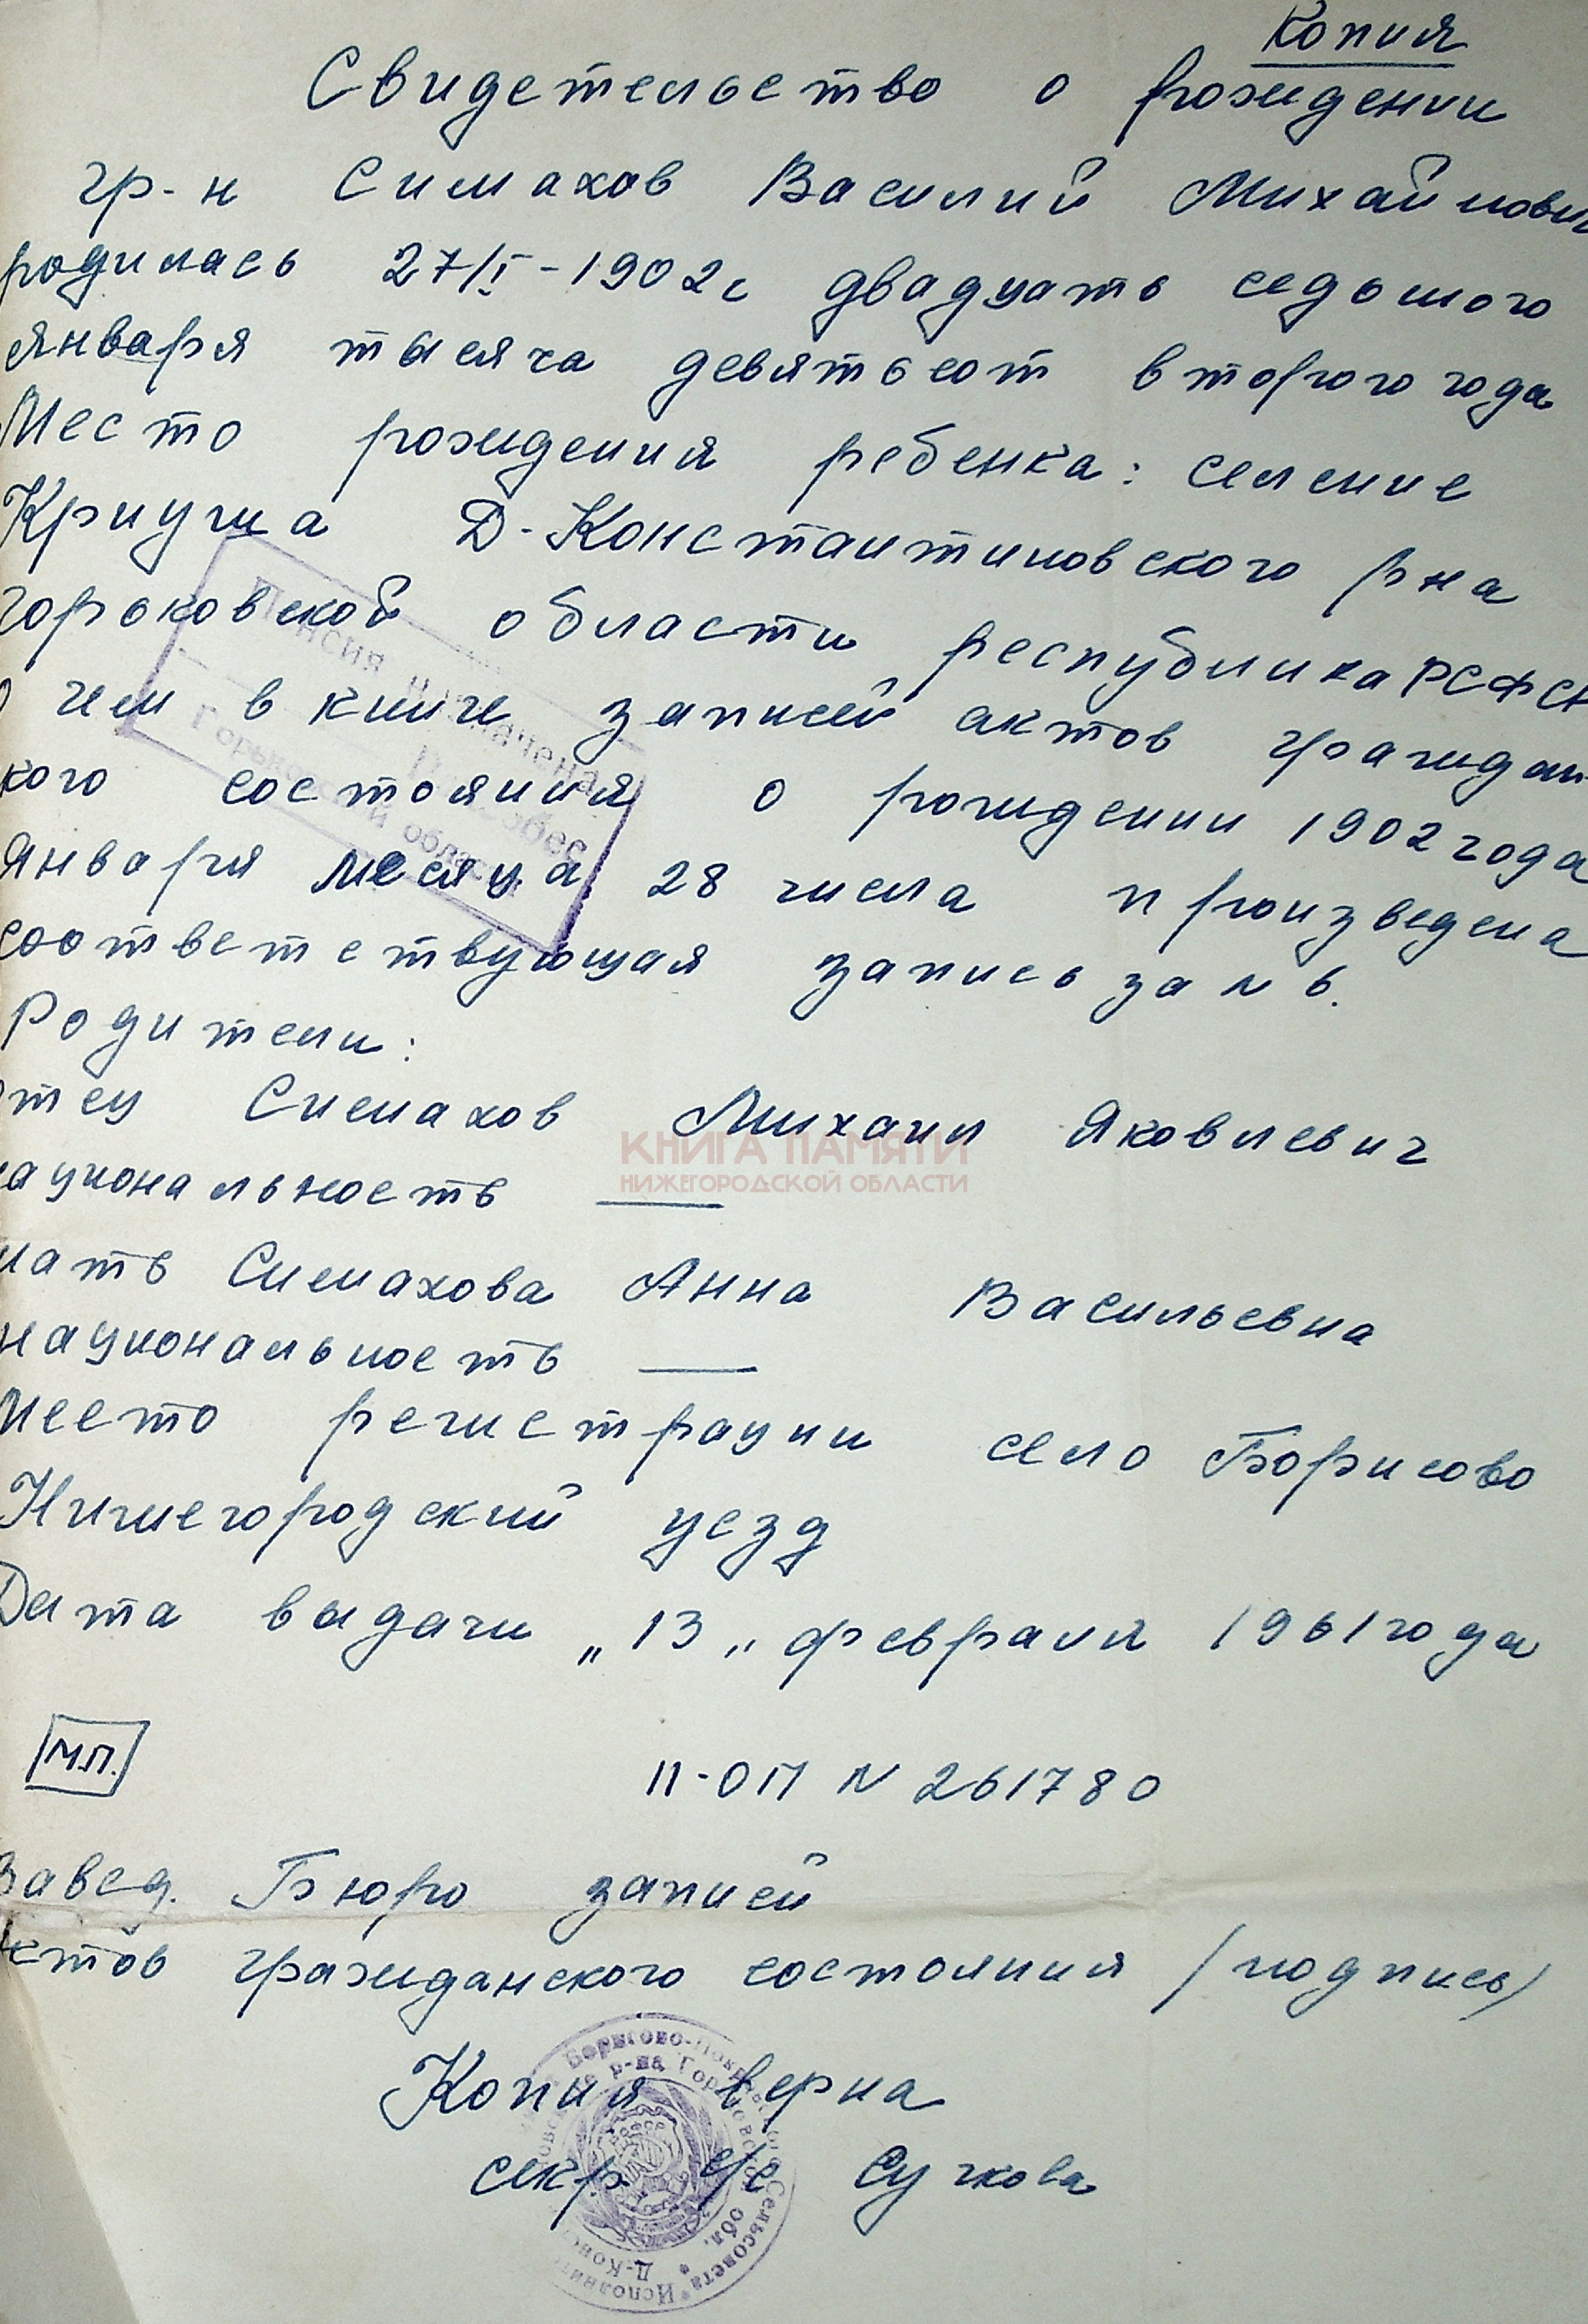 Копия
Свидетельство о рождении
гр-н Симахов Василий Михайлович
родилась 27/I-1902г двадцать седьмого
января тысяча девятьсот второго года
Место рождения ребенка: селение
Криуша Д-Константиновского рна
Горьковской области республика РСФСР
О чем в книге записей актов граждан-
кого состояния о рождении 1902 года
января месяца 28 числа произведена
соответствующая запись за N 6.
Родители:
Отец Симахов Михаил Яковлевич
национальность —
мать Симахова Анна Васильевна
национальность —
Место регистрации село Борисово
Нижегородский уезд
Дата выдачи „13„ февраля 1961 года
М.П.
II-ОП N 261780
Завед. Бюро записей
актов гражданского состояния /подпись/
Копия верна
секр. с/с Сучкова
Пенсия назначена
Райсобес
Горьковской области
КНИГА ПАМЯТИ
НИЖЕГОРОДСКОЙ ОБЛАСТИ
Борисово-Покровского Сельсовета * Исполнит
Д-Конс р-на Горьковской обл. *